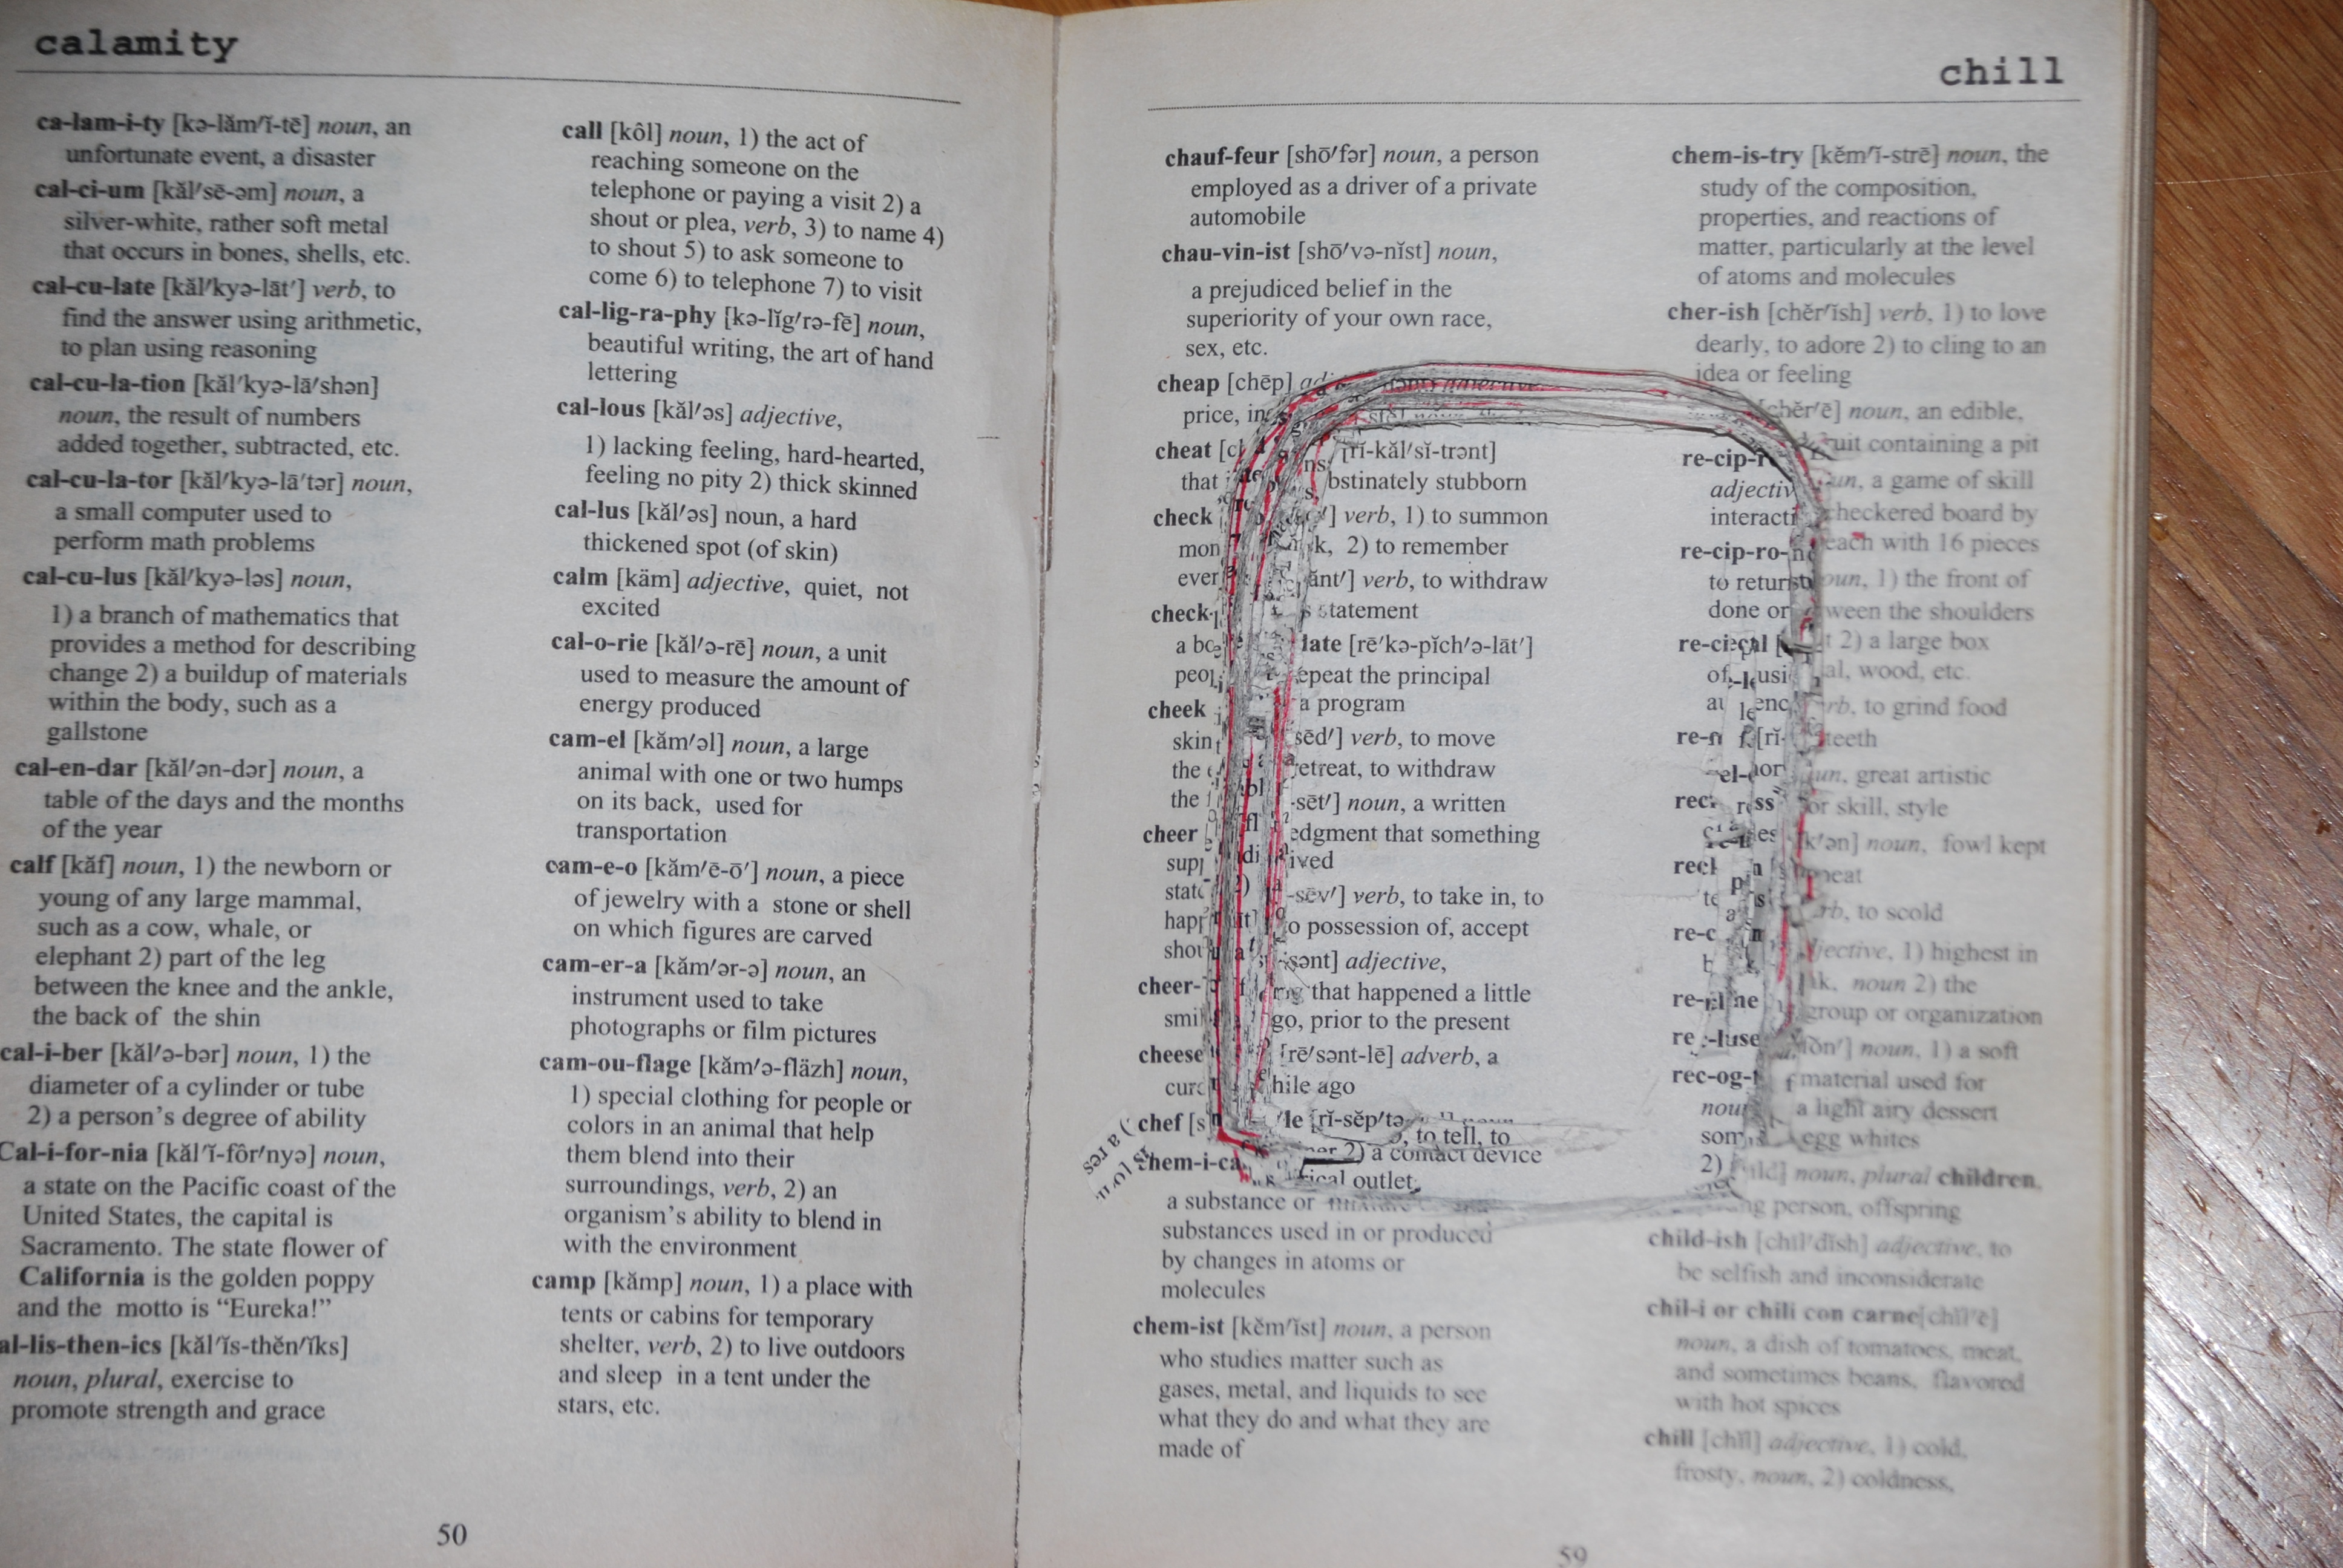 calamity
ca-lam-i-ty [kə-lăm′ĭ-tē] noun, an
unfortunate event, a disaster
cal-ci-um [kăl′sē-əm] noun, a
silver-white, rather soft metal
that occurs in bones, shells, etc.
cal-cu-late [kăl′kyə-lāt′] verb, to
find the answer using arithmetic,
to plan using reasoning
cal-cu-la-tion [kăl′kyə-lā′shən]
noun, the result of numbers
added together, subtracted, etc.
cal-cu-la-tor [kăl′kyə-lā′tər] noun,
a small computer used to
perform math problems
cal-cu-lus [kăl′kyə-ləs] noun,
1) a branch of mathematics that
provides a method for describing
change 2) a buildup of materials
within the body, such as a
gallstone
cal-en-dar [kăl′ən-dər] noun, a
table of the days and the months
of the year
calf [kăf] noun, 1) the newborn or
young of any large mammal,
such as a cow, whale, or
elephant 2) part of the leg
between the knee and the ankle,
the back of the shin
cal-i-ber [kăl′ə-bər] noun, 1) the
diameter of a cylinder or tube
2) a person's degree of ability
Cal-i-for-nia [kăl′ĭ-fôr′nyə] noun,
a state on the Pacific coast of the
United States, the capital is
Sacramento. The state flower of
California is the golden poppy
and the motto is “Eureka!”
al-lis-then-ics [kăl′ĭs-thĕn′ĭks]
noun, plural, exercise to
promote strength and grace
call [kôl] noun, 1) the act of
reaching someone on the
telephone or paying a visit 2) a
shout or plea, verb, 3) to name 4)
to shout 5) to ask someone to
come 6) to telephone 7) to visit
cal-lig-ra-phy [kə-lĭg′rə-fē] noun,
beautiful writing, the art of hand
lettering
cal-lous [kăl′əs] adjective,
1) lacking feeling, hard-hearted,
feeling no pity 2) thick skinned
cal-lus [kăl′əs] noun, a hard
thickened spot (of skin)
calm [käm] adjective, quiet, not
excited
cal-o-rie [kăl′ə-rē] noun, a unit
used to measure the amount of
energy produced
cam-el [kăm′əl] noun, a large
animal with one or two humps
on its back, used for
transportation
cam-e-o [kăm′ē-ō′] noun, a piece
of jewelry with a stone or shell
on which figures are carved
cam-er-a [kăm′ər-ə] noun, an
instrument used to take
photographs or film pictures
cam-ou-flage [kăm′ə-fläzh] noun,
1) special clothing for people or
colors in an animal that help
them blend into their
surroundings, verb, 2) an
organism's ability to blend in
with the environment
camp [kămp] noun, 1) a place with
tents or cabins for temporary
shelter, verb, 2) to live outdoors
and sleep in a tent under the
stars, etc.
50
chill
chauf-feur [shō′fər] noun, a person
employed as a driver of a private
automobile
chau-vin-ist [shō′və-nĭst] noun,
a prejudiced belief in the
superiority of your own race,
sex, etc.
cheap [chēp]
price,
cheat
that
check
mon
ever
check
peo
cheek
skin
the
the
cheer
supp
state
happ
cheer-
smi
cheese
chef
chem-i-ca
a substance or
substances used in or produced
by changes in atoms or
molecules
chem-ist [kĕm′ĭst] noun, a person
who studies matter such as
gases, metal, and liquids to see
what they do and what they are
made of
[rĭ-kăl′sĭ-trənt]
bstinately stubborn
verb, 1) to summon
2) to remember
verb, to withdraw
statement
late [rē′kə-pĭch′ə-lāt′]
epeat the principal
a program
verb, to move
etreat, to withdraw
-sēt′] noun, a written
edgment that something
ived
-sēv′] verb, to take in, to
o possession of, accept
adjective,
that happened a little
go, prior to the present
[rē′sənt-lē] adverb, a
hile ago
to tell, to
2) a contact device
outlet
re-cip-r
adjectiv
interacti
re-cip-ro-
to return
done or
rec-og-
chem-is-try [kĕm′ĭ-strē] noun, the
study of the composition,
properties, and reactions of
matter, particularly at the level
of atoms and molecules
cher-ish [chĕr′ĭsh] verb, 1) to love
dearly, to adore 2) to cling to an
idea or feeling
[chĕr′ē] noun, an edible,
uit containing a pit
a game of skill
checkered board by
each with 16 pieces
oun, 1) the front of
ween the shoulders
2) a large box
al, wood, etc.
rb, to grind food
teeth
un, great artistic
or skill, style
noun, fowl kept
meat
rb, to scold
jective, 1) highest in
noun 2) the
group or organization
noun, 1) a soft
material used for
a light airy dessert
egg whites
noun, plural children,
ng person, offspring
child-ish [chīl′dĭsh] adjective, to
be selfish and inconsiderate
chil-i or chili con carne[chĭl′ē]
noun, a dish of tomatoes, meat,
and sometimes beans, flavored
with hot spices
chill [chĭl] adjective, 1) cold,
frosty, noun, 2) coldness,
59